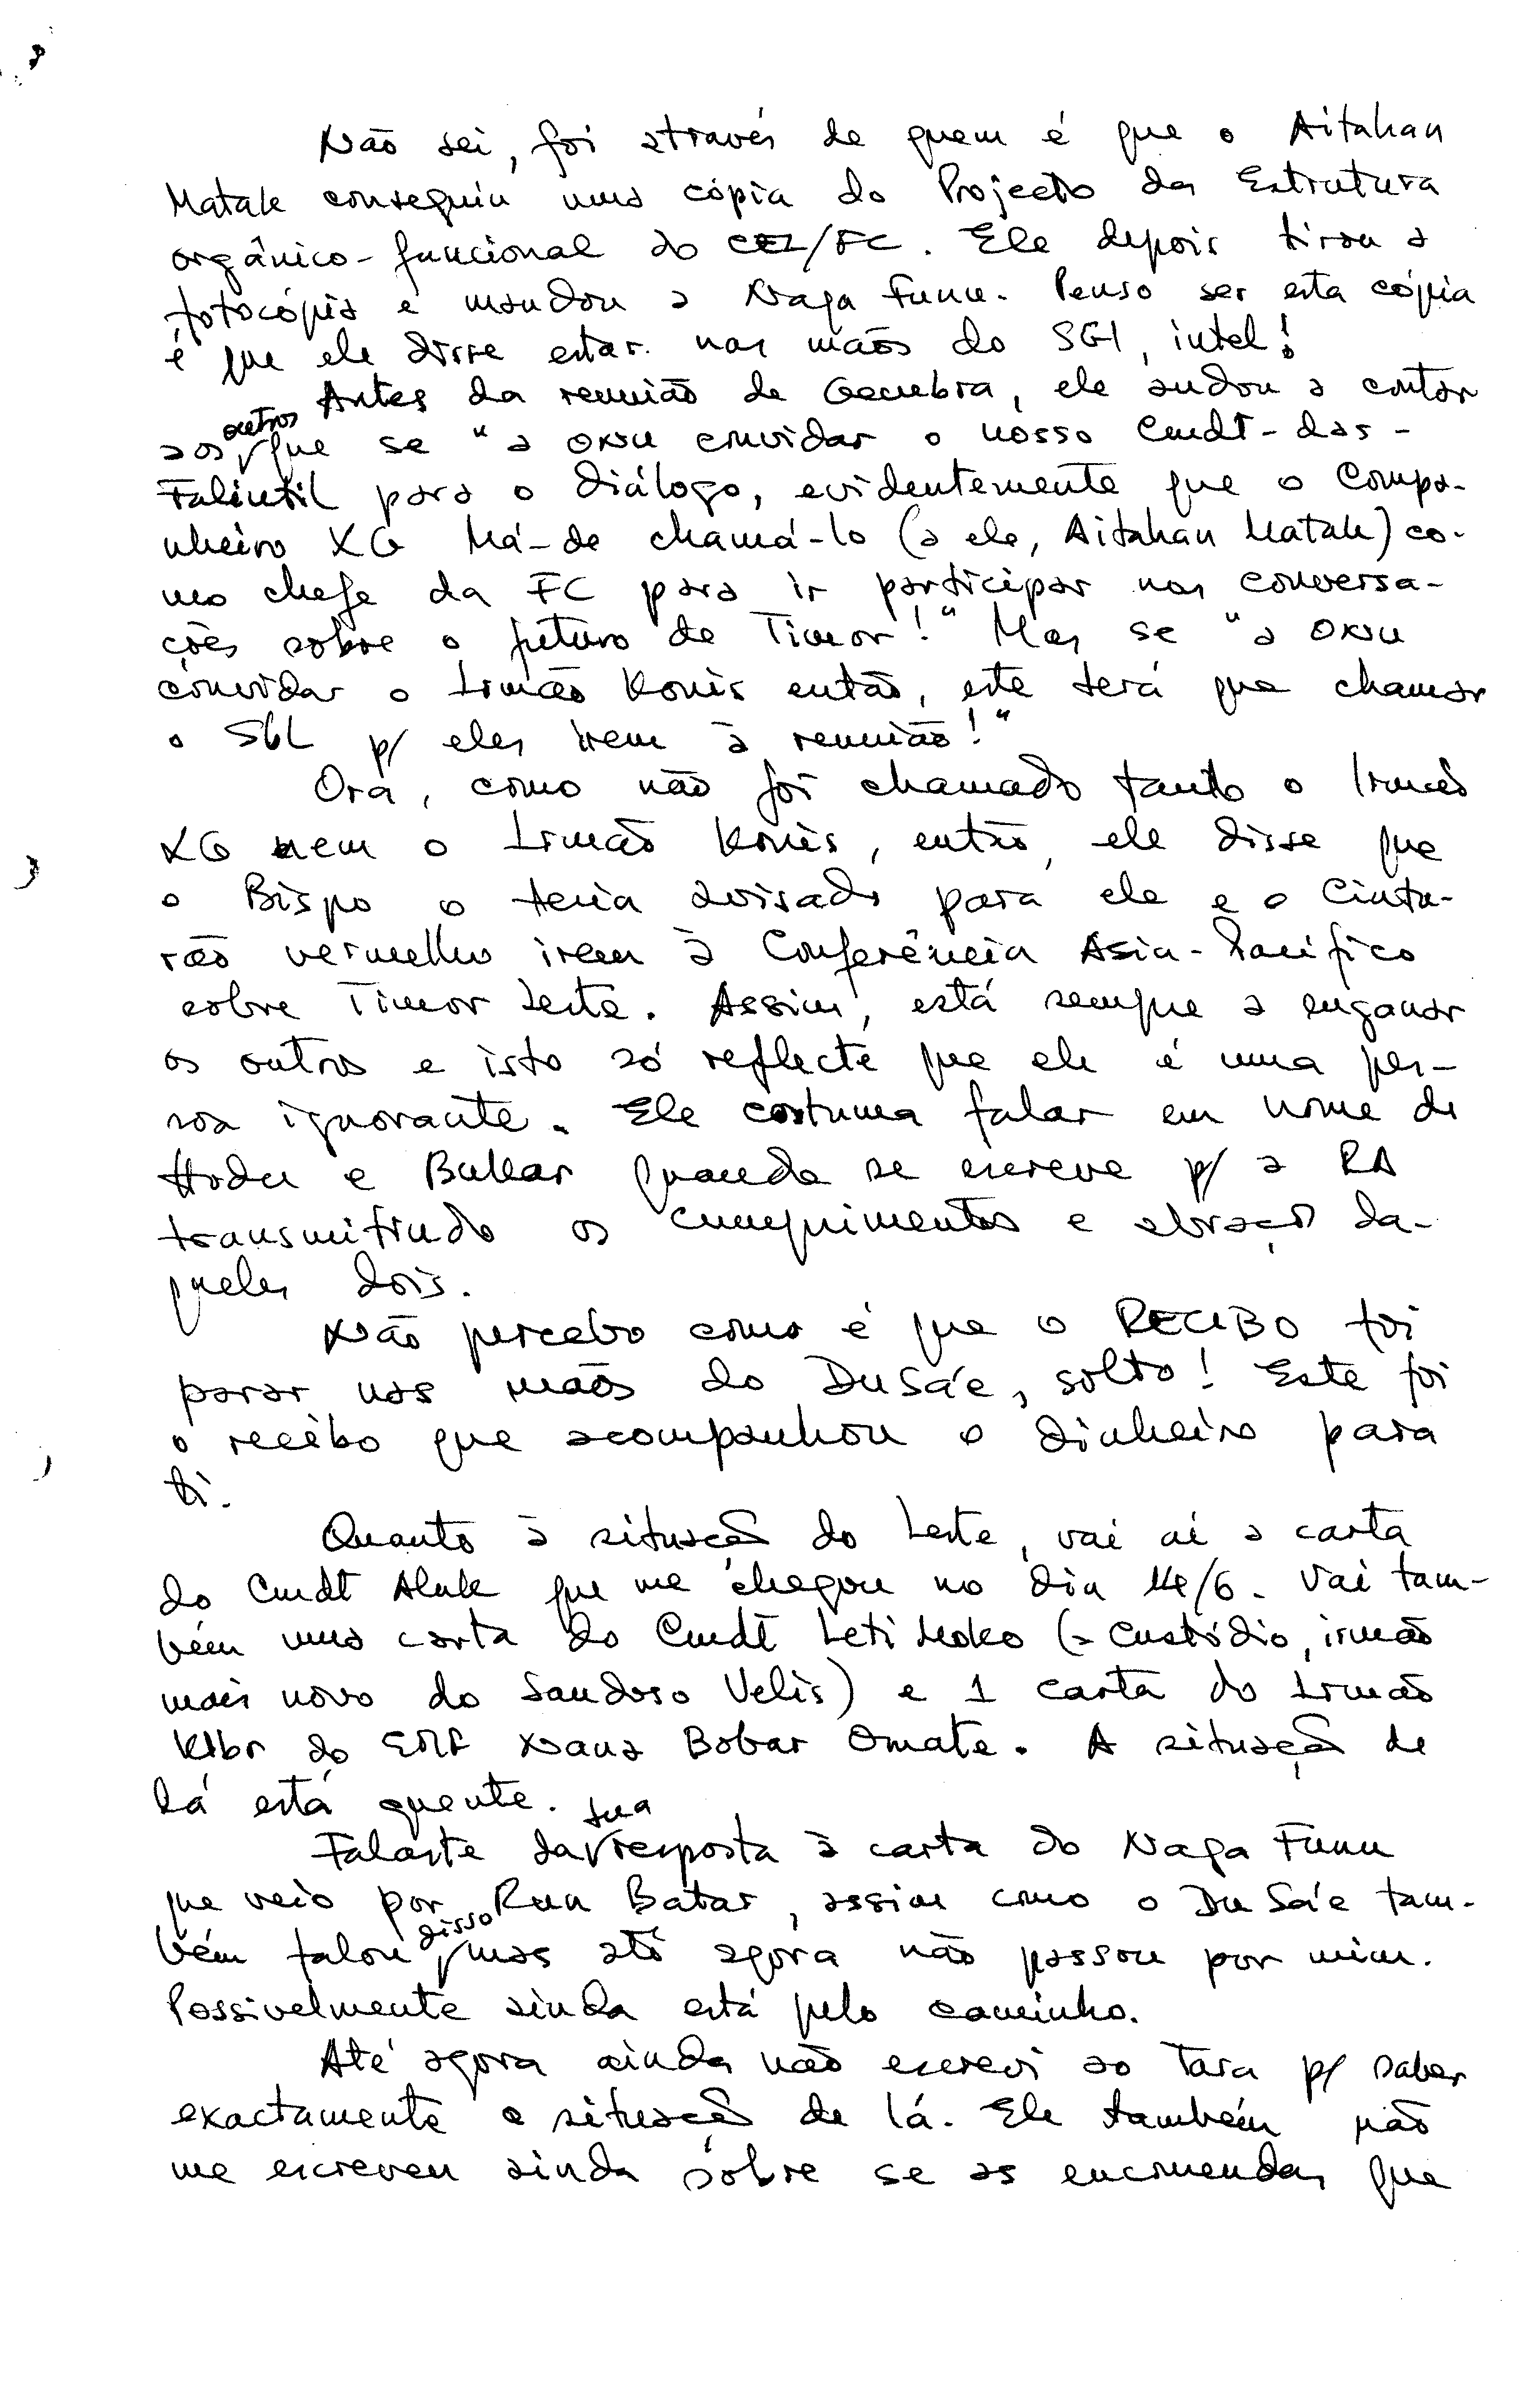 Não sei, foi através de quem é que o Aitahan
Matak conseguiu uma cópia do Projecto da Estrutura
orgânico-funcional do CEL/FC. Ele depois tirou a
fotocópia e mandou a Naga Funu. Penso ser esta cópia
é que ele disse estar nas mãos do SGI, intel!
Antes da reunião de Genebra, ele andou a contar
aos outros que se "a ONU convidar o nosso Cmdt-das-
Falintil para o diálogo, evidentemente que o Compa-
nheiro XG há-de chamá-lo (a ele, Aitahan Matak) co-
mo chefe da FC para ir participar nas conversa-
ções sobre o futuro de Timor!" Mas se "a ONU
convidar o Irmão Konis então, este terá que chamar
o SGL p/ eles irem à reunião!"
Ora, como não foi chamado tanto o Irmão
XG nem o Irmão Konis, então, ele disse que
o Bispo o teria avisado para ele e o Cintu-
rão vermelho irem à Conferência Asia-Pacífico
sobre Timor Leste. Assim, está sempre a enganar
os outros e isto só reflecte que ele é uma pes-
soa ignorante. Ele costuma falar em nome de
Hodu e Bukar quando se escreve p/ a RA
transmitindo os cumprimentos e abraços da-
queles dois.
Não percebo como é que o RECIBO foi
parar nas mãos do DuSa'e, solto! Este foi
o recibo que acompanhou o dinheiro para
ti.
Quanto à situação do Leste, vai aí a carta
do Cmdt Aluk que me chegou no dia 14/6. Vai tam-
bém uma carta do Cmdt Leti Moko (= Custódio, irmão
mais novo do Sandoso Velis) e 1 carta do Irmão
Klbr do Nana Bobar Omate. A situação de
lá está quente.
Falaste da sua resposta à carta do Naga Funu
que veio por Run Batar, assim como o Du Sa'e tam-
bém falou disso, mas até agora não passou por mim.
Possivelmente ainda está pelo caminho.
Até agora ainda não escrevi ao Tara p/ saber
exactamente a situação de lá. Ele também não
me escreveu ainda sobre se as encomendas que